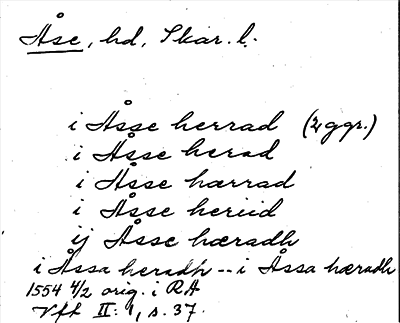 Åse, hd, Skar. l.
i Åsse herrad (2 ggr.)
i Åsse herad
i Åsse hærrad
i Åsse heriid
ij Åsse hæradh
i Åssa heradh -- i Åssa hæradh
1554 4/2 orig. i RA
Vft II: 1, s. 37.